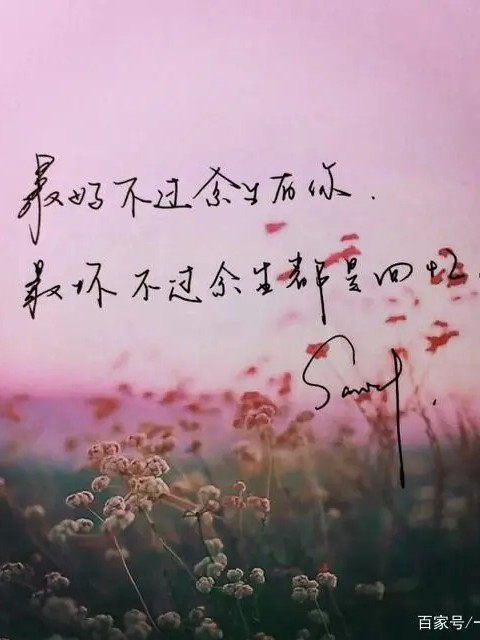 最好不过余生有你.
最坏不过余生都是回忆.
百家号/一